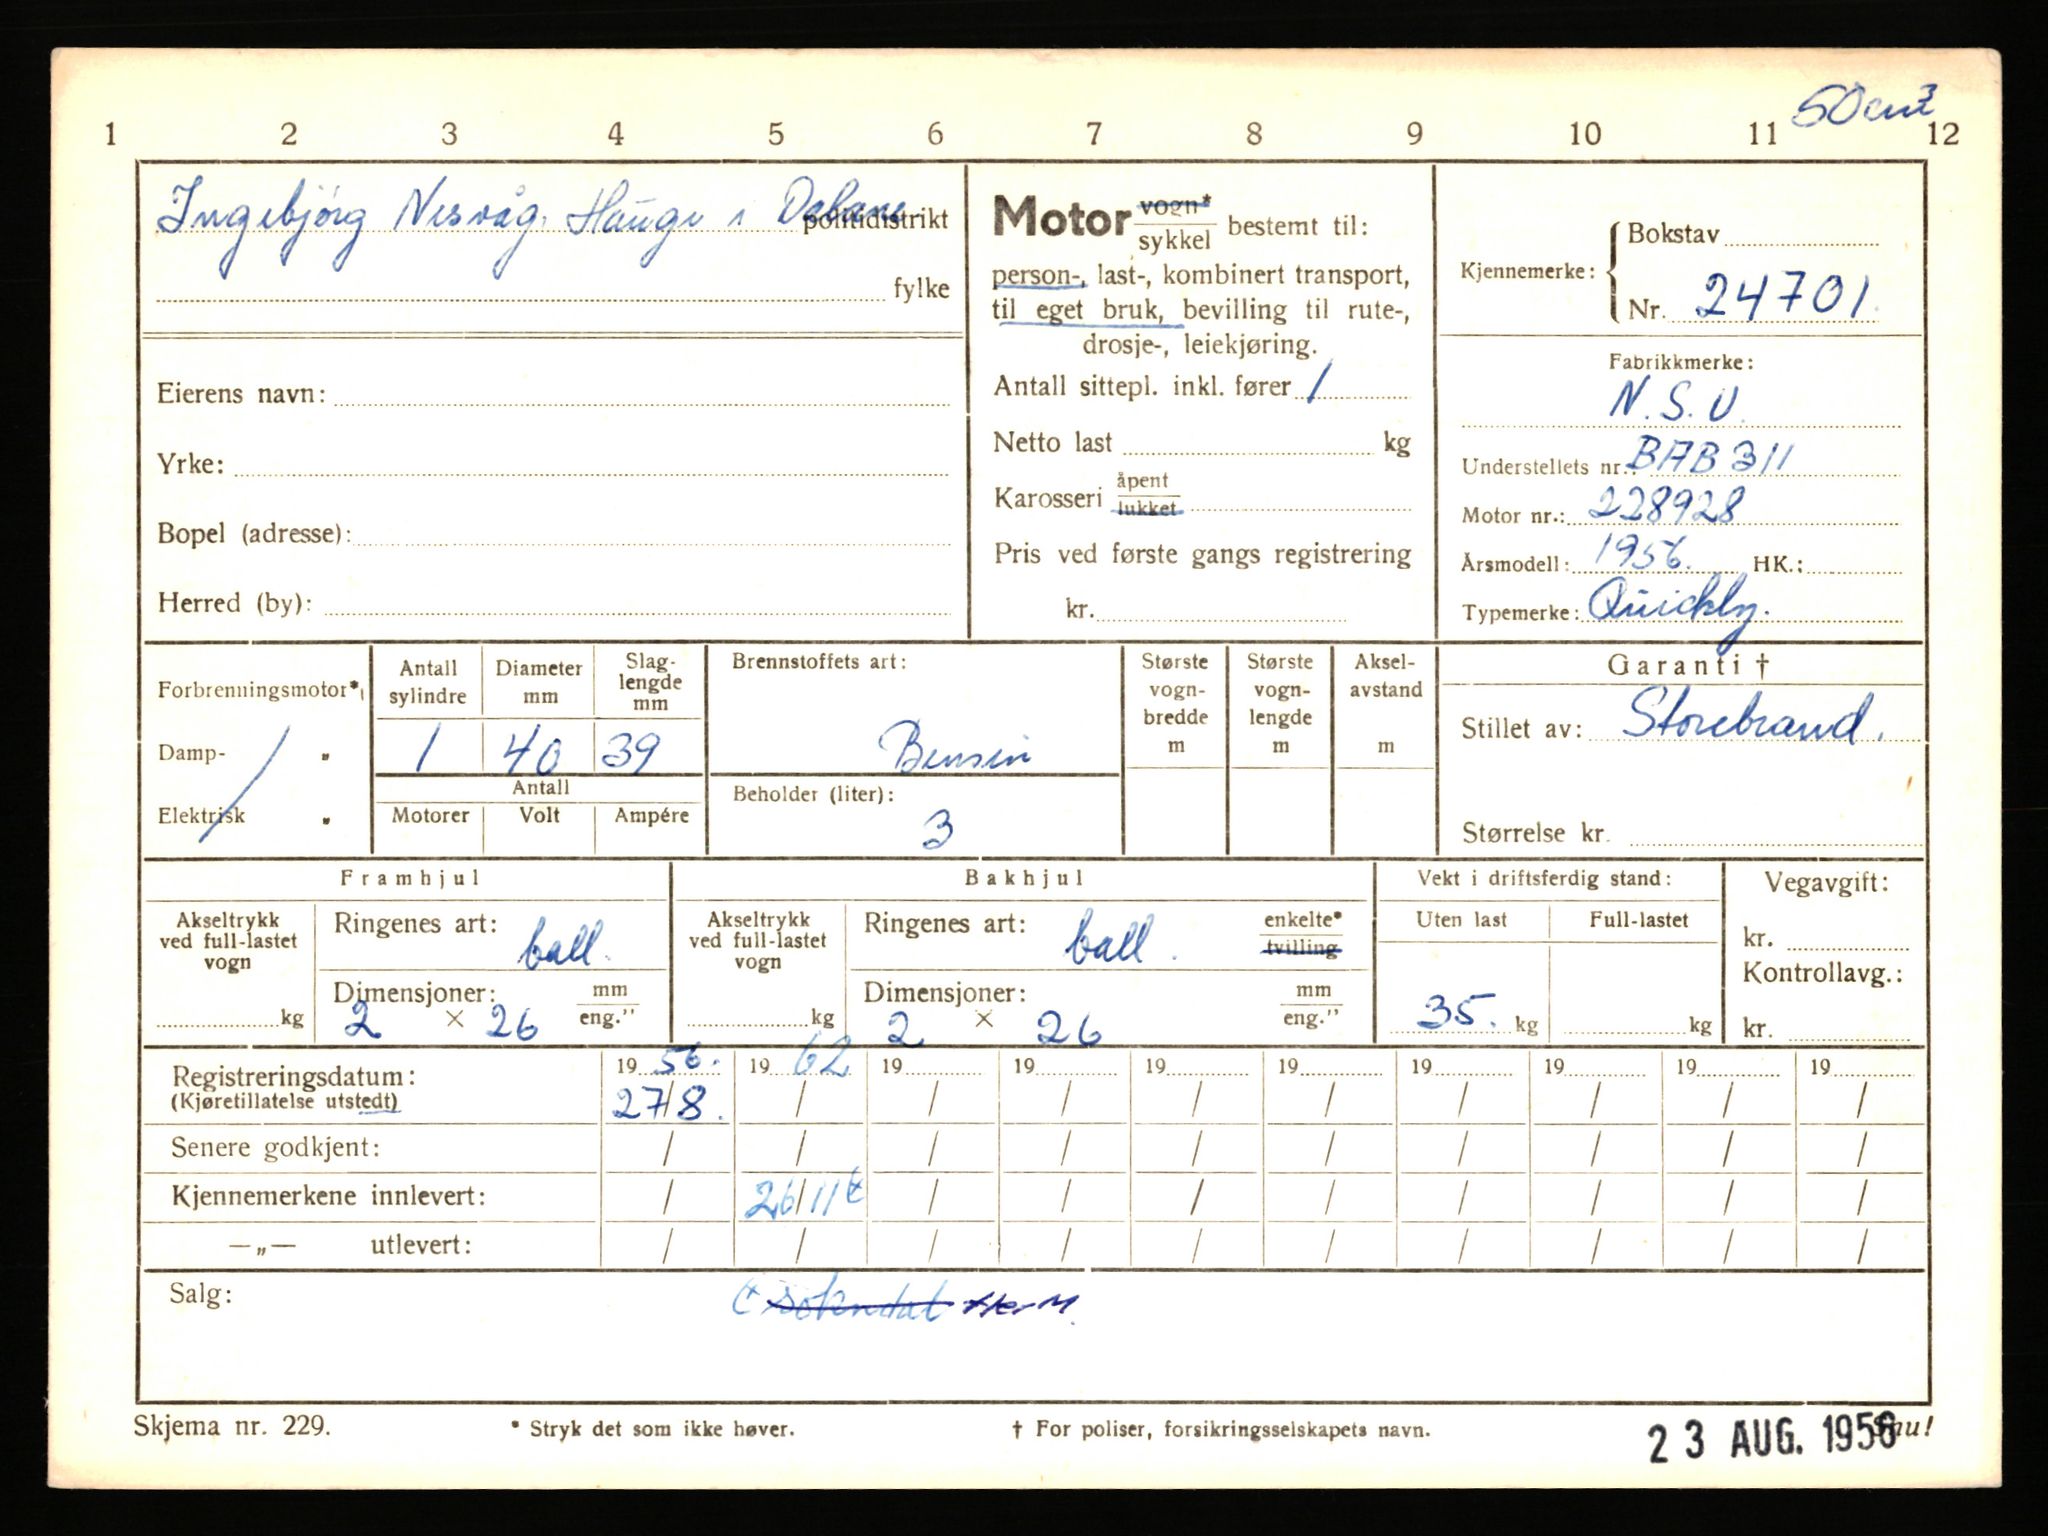 50 cm3
1 2 3 4 5 6 7 8 9 10 11 12
Ingebjørg Nesvåg, Hauge i Dalane politidistrikt
fylke
Eierens navn:
Yrke:
Bopel (adresse):
Herred (by):
Motor vogn*
sykkel bestemt til:
person-, last-, kombinert transport,
til eget bruk, bevilling til rute-,
drosje-, leiekjøring.
Antall sittepl. inkl. fører 1
Netto last kg
Karosseri åpent
lukket
Pris ved første gangs registrering
kr.
Kjennemerke: Bokstav
Nr. 24701.
Fabrikkmerke:
N.S.U.
Understellets nr.: BAB311
Motor nr.: 228928
Årsmodell: 1956. HK.:
Typemerke: Quickly.
Forbrenningsmotor*
Damp- „
Elektrisk „
Antall sylindre
Diameter mm
Slag-
lengde
mm
1 40 39
Antall
Motorer Volt Ampére
Brennstoffets art:
Bensin
Beholder (liter):
3
Største
vogn-
bredde
m
Største
vogn-
lengde
m
Aksel-
avstand
m
Garanti †
Stillet av: Storebrand.
Størrelse kr.
Framhjul
Akseltrykk
ved full-lastet
vogn
kg
Ringenes art: ball.
Dimensjoner: mm
2 × 26 eng."
Bakhjul
Akseltrykk
ved full-lastet
vogn
kg
Ringenes art: ball. enkelte*
tvilling
Dimensjoner: mm
2 × 26 eng."
Vekt i driftsferdig stand:
Uten last Full-lastet
35. kg kg
Vegavgift:
kr.
Kontrollavg.:
kr.
Registreringsdatum: 19 56. 19 62 19 19 19 19 19 19 19 19
(Kjøretillatelse utstedt) 27/8. / / / / / / / / /
Senere godkjent: / / / / / / / / / /
Kjennemerkene innlevert: / 26/11 / / / / / / / /
—„— utlevert: / / / / / / / / / /
Salg: Sokndal
Skjema nr. 229. * Stryk det som ikke høver. † For poliser, forsikringsselskapets navn. Snu!
23 AUG. 1956